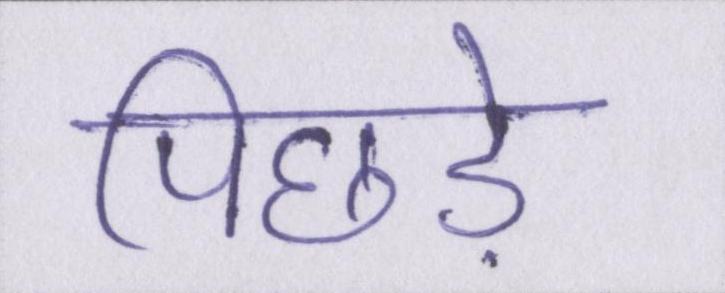 पिछड़े